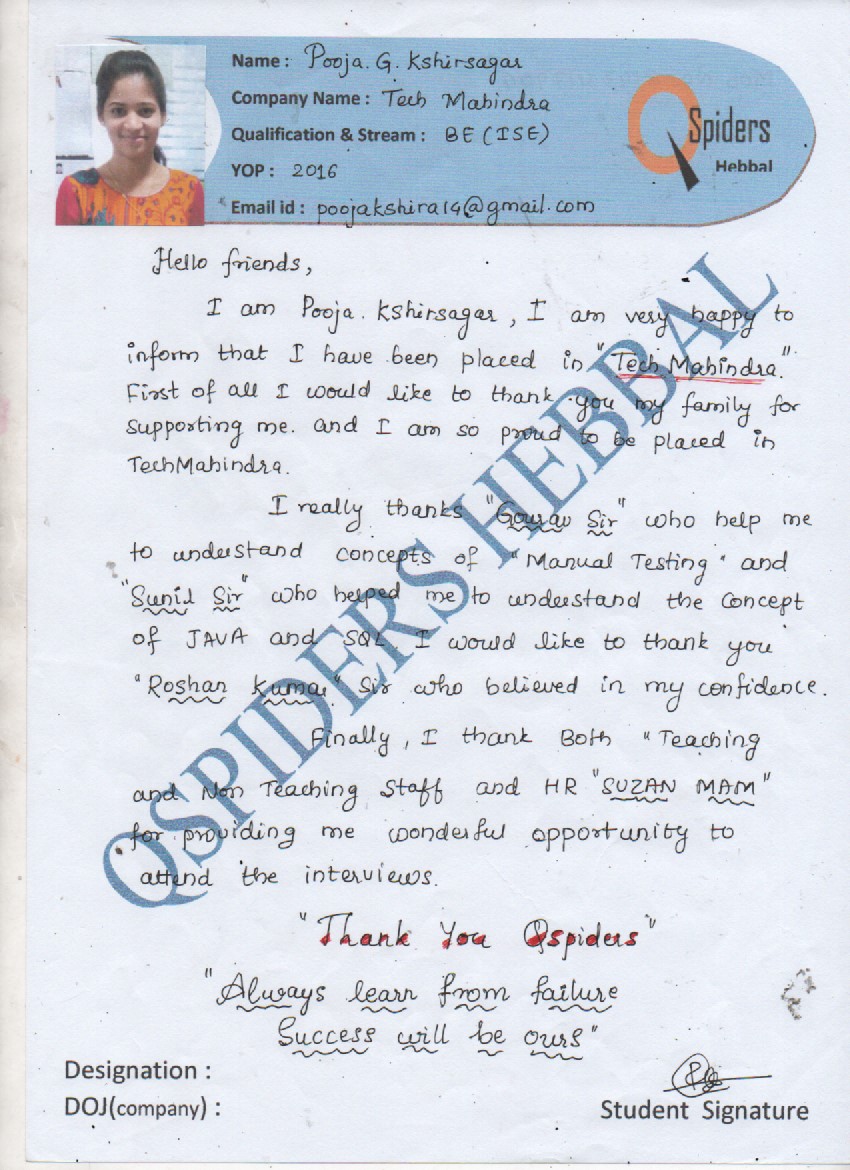 Name : Pooja. G. Kshirsagar
Company Name : Tech Mahindra
Qualification & Stream : BE (ISE)
YOP : 2016
Email id : poojakshira14@gmail.com
QSpiders
Hebbal
Hello friends,
I am Pooja. Kshirsagar, I am very happy to
inform that I have been placed in "Tech Mahindra."
First of all I would like to thank you my family for
supporting me. and I am so proud to be placed in
TechMahindra.
I really thanks "Gourav Sir" who help me
to understand concepts of "Manual Testing" and
"Sunil Sir" who helped me to understand the concept
of JAVA and SQL I would like to thank you
"Roshan Kumar" Sir who believed in my confidence.
Finally, I thank Both "Teaching
and Non Teaching Staff and HR "SUZAN MAM"
for providing me wonderful opportunity to
attend the interviews.
"Thank You Qspiders"
"Always learn from failure
Success will be ours"
QSPIDERS HEBBAL
Designation :
DOJ(company) :
Student Signature